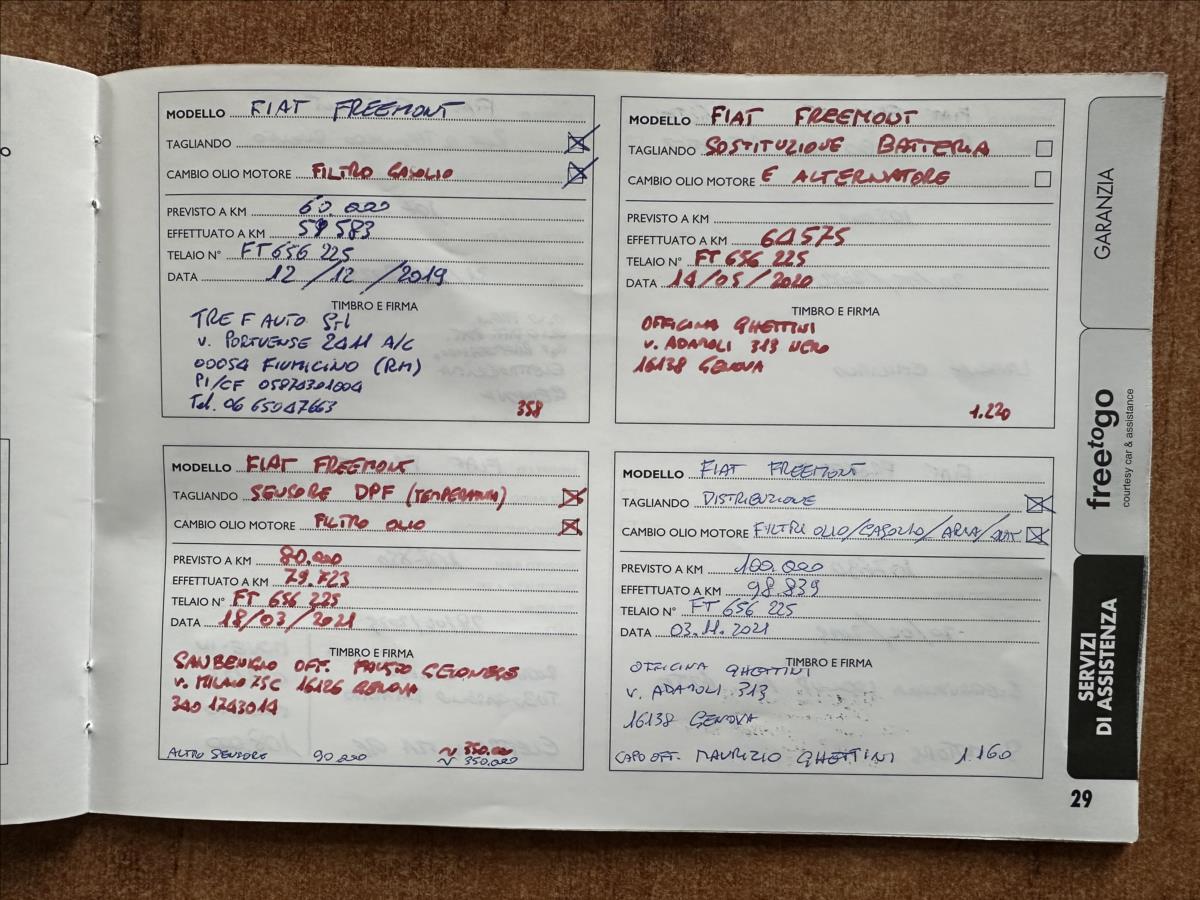 MODELLO FIAT FREEMONT
TAGLIANDO
CAMBIO OLIO MOTORE FILTRO GASOLIO
PREVISTO A KM 60.000
EFFETTUATO A KM 59583
TELAIO N° FT 656 225
DATA 12/12/2019
TIMBRO E FIRMA
TRE F AUTO Srl
V. PORTUENSE 2411 A/C
00054 FIUMICINO (RM)
PI/CF 05874301004
Tel. 06 65047663
358
MODELLO FIAT FREEMONT
TAGLIANDO SOSTITUZIONE BATTERIA
CAMBIO OLIO MOTORE E ALTERNATORE
PREVISTO A KM
EFFETTUATO A KM 64575
TELAIO N° FT 656 225
DATA 14/05/2020
TIMBRO E FIRMA
OFFICINA GHETTINI
V. ADAMOLI 313 NERO
16138 GENOVA
1.220
MODELLO FIAT FREEMONT
TAGLIANDO SENSORE DPF (TEMPERATURA)
CAMBIO OLIO MOTORE FILTRO OLIO
PREVISTO A KM 80.000
EFFETTUATO A KM 79.723
TELAIO N° FT 656 225
DATA 18/03/2021
TIMBRO E FIRMA
SANBENIGIO OFF. FAUSTO
V. MILANO 75C 16126 GENOVA
340 1743014
ALTRO SENSORE 90.000 ~ 350.00
~ 350.000
MODELLO FIAT FREEMONT
TAGLIANDO DISTRIBUZIONE
CAMBIO OLIO MOTORE FILTRI OLIO/GASOLIO/ARIA/
PREVISTO A KM 100.000
EFFETTUATO A KM 98.839
TELAIO N° FT 656 225
DATA 03.11.2021
TIMBRO E FIRMA
OFFICINA GHETTINI
V. ADAMOLI 313
16138 GENOVA
CAPO OFF. MAURIZIO GHETTINI 1.160
GARANZIA
freetogo
courtesy car & assistance
SERVIZI
DI ASSISTENZA
29